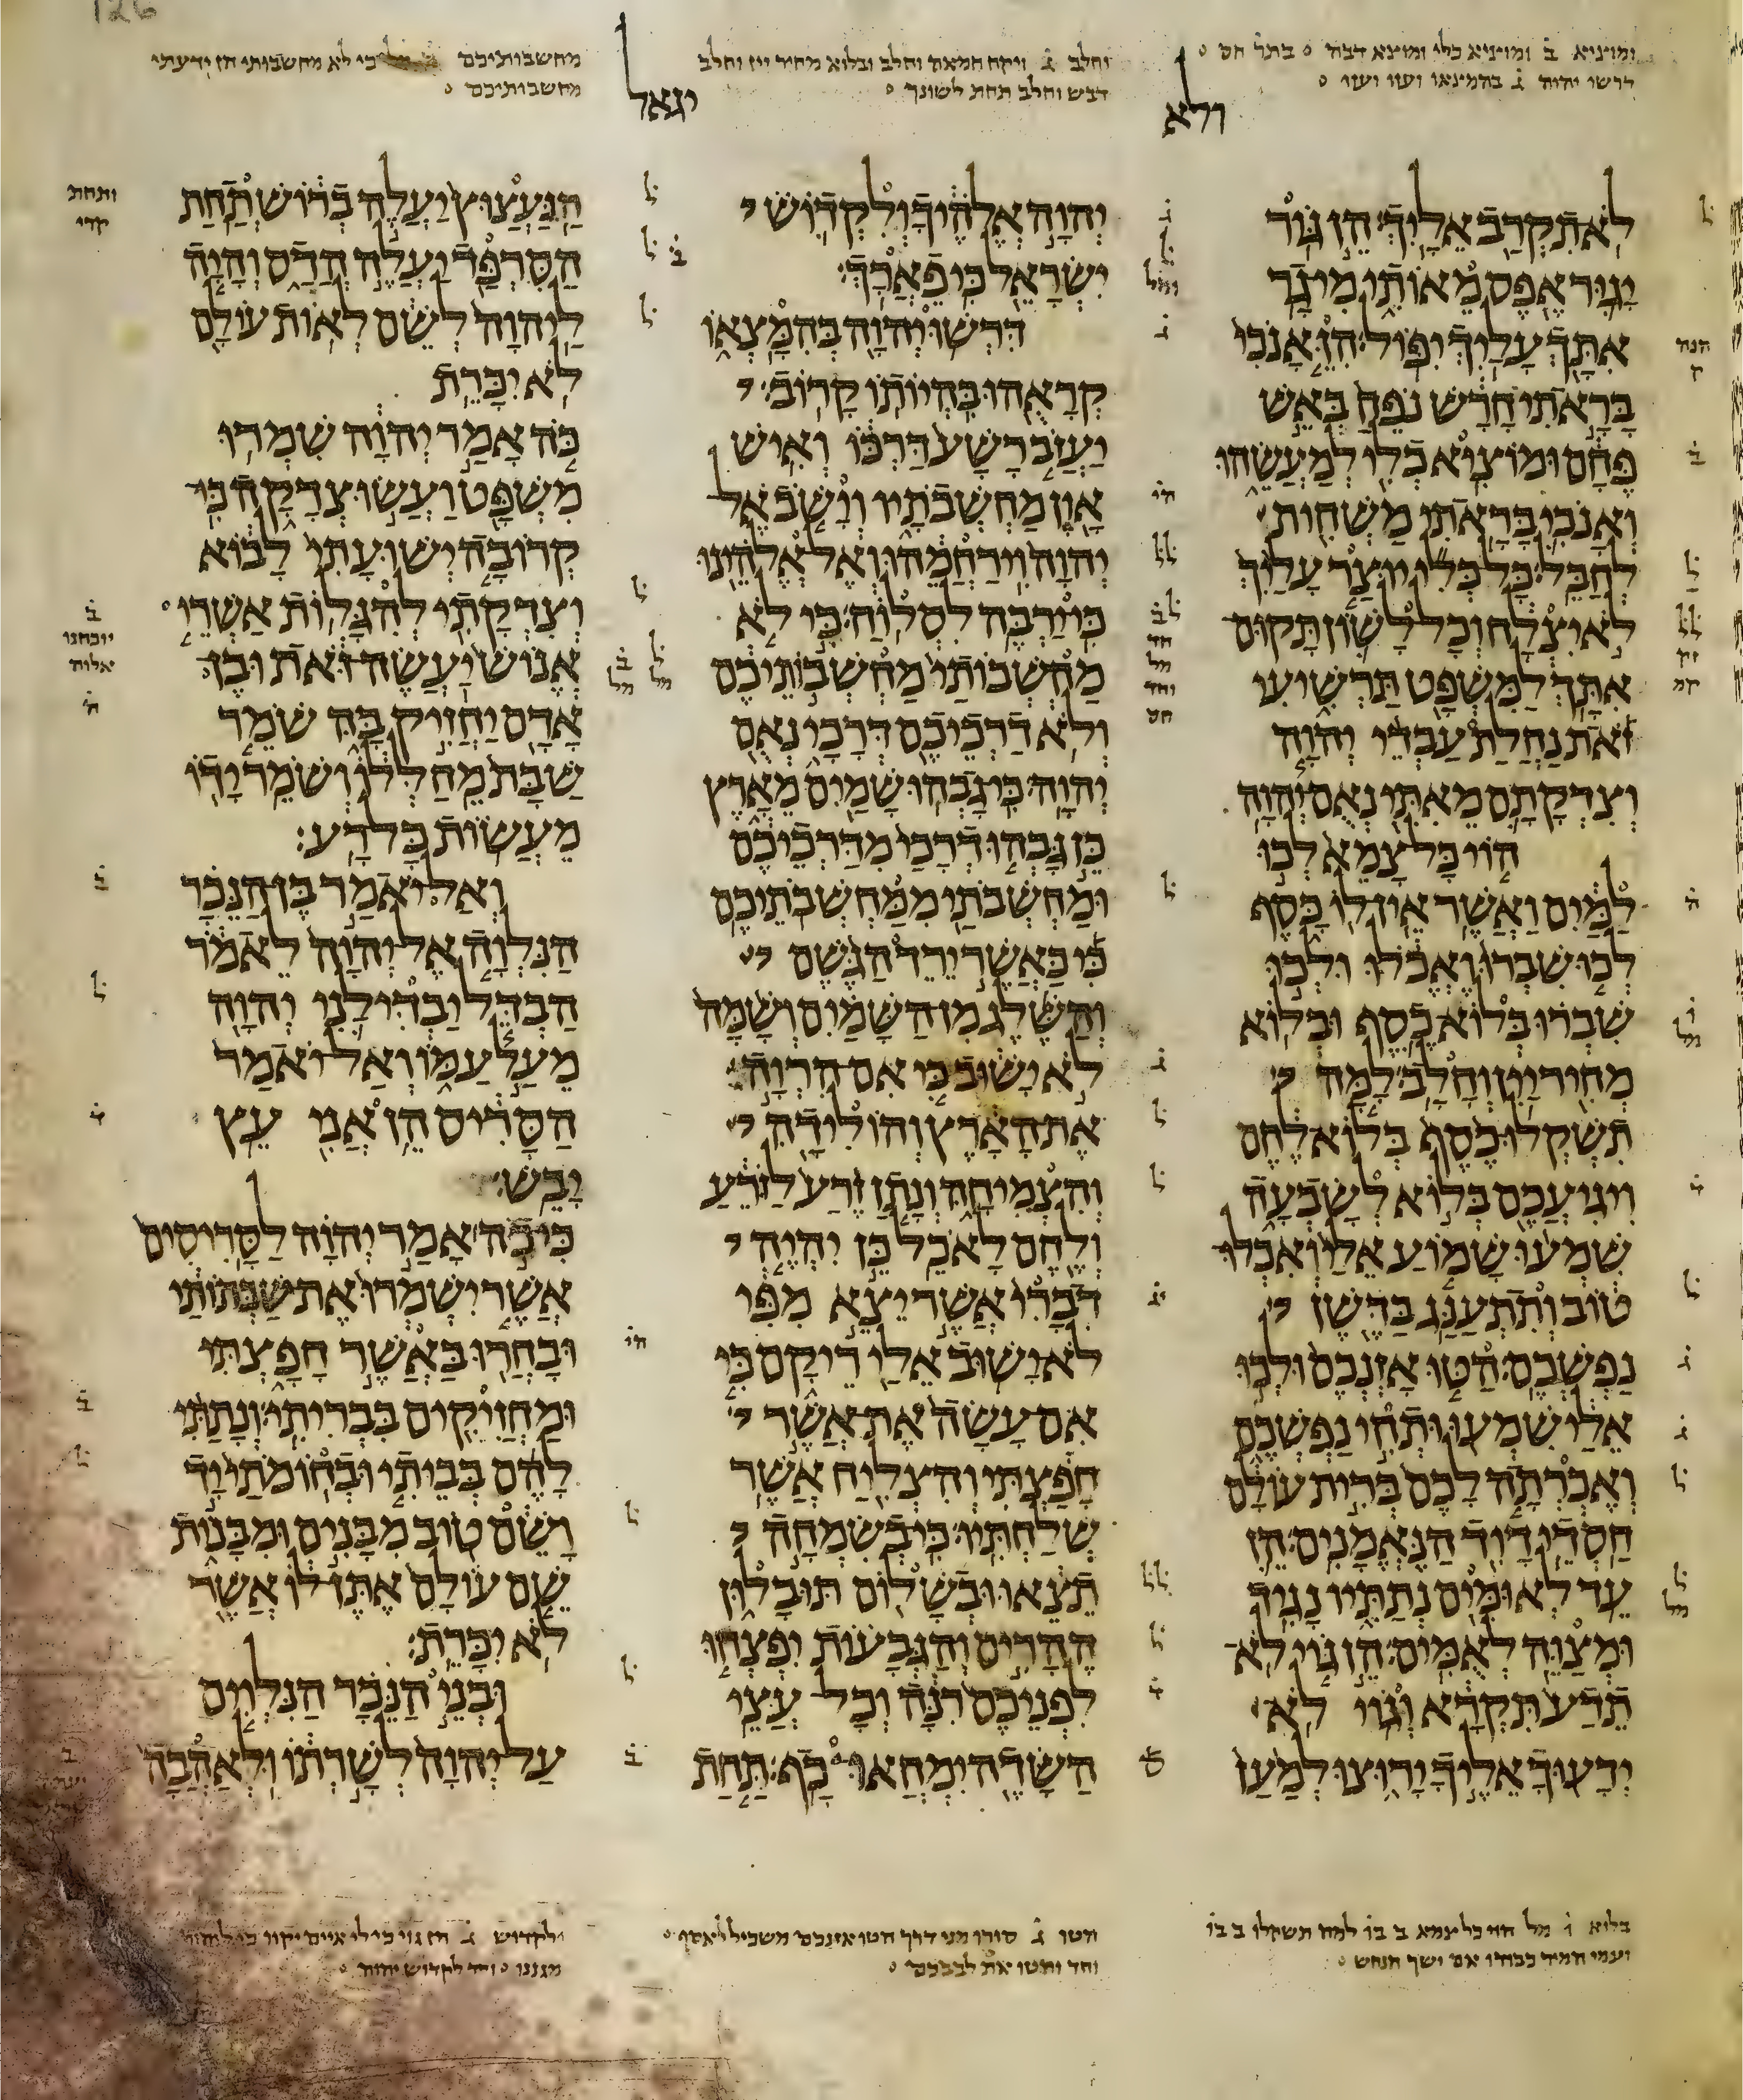 ומוציא ב ומוציא כלי ומוצא דבה בתר חס
דרשו יהוה ג בהמצאו ועזו ועזו
ולא
וחלב ג ויקח חמאה וחלב ובלוא מחיר יין וחלב
דבש וחלב תחת לשונך
יגאל
מחשבותיכם כי לא מחשבותי הן ידעתי
מחשבותיכם
לא תקרב אליך הן גור
יגור אפס מאותי מי גר
אתך עליך יפול הן אנכי
בראתי חרש נפח באש
פחם ומוציא כלי למעשהו
ואנכי בראתי משחית
לחבל כל כלי יוצר עליך
לא יצלח וכל לשון תקום
אתך למשפט תרשיעי
זאת נחלת עבדי יהוה
וצדקתם מאתי נאם יהוה
הוי כל צמא לכו
למים ואשר אין לו כסף
לכו שברו ואכלו ולכו
שברו בלוא כסף ובלוא
מחיר יין וחלב למה
תשקלו כסף בלוא לחם
ויגיעכם בלוא לשבעה
שמעו שמוע אלי ואכלו
טוב ותתענג בדשן
נפשכם הטו אזנכם ולכו
אלי שמעו ותחי נפשכם
ואכרתה לכם ברית עולם
חסדי דויד הנאמנים הן
עד לאומים נתתיו נגיד
ומצוה לאמים הן גוי לא
תדע תקרא וגוי לא
ידעוך אליך ירוצו למען
יהוה אלהיך ולקדוש
ישראל כי פארך
דרשו יהוה בהמצאו
קראהו בהיותו קרוב
יעזב רשע דרכו ואיש
און מחשבתיו וישב אל
יהוה וירחמהו ואל אלהינו
כי ירבה לסלוח כי לא
מחשבותי מחשבותיכם
ולא דרכיכם דרכי נאם
יהוה כי גבהו שמים מארץ
כן גבהו דרכי מדרכיכם
ומחשבתי ממחשבתיכם
כי כאשר ירד הגשם
והשלג מן השמים ושמה
לא ישוב כי אם הרוה
את הארץ והולידה
והצמיחה ונתן זרע לזרע
ולחם לאכל כן יהיה
דברי אשר יצא מפי
לא ישוב אלי ריקם כי
אם עשה את אשר
חפצתי והצליח אשר
שלחתיו כי בשמחה
תצאו ובשלום תובלון
ההרים והגבעות יפצחו
לפניכם רנה וכל עצי
השדה ימחאו כף תחת
הנעצוץ יעלה ברוש תחת
הסרפד יעלה הדס והיה
ליהוה לשם לאות עולם
לא יכרת
כה אמר יהוה שמרו
משפט ועשו צדקה כי
קרובה ישועתי לבוא
וצדקתי להגלות אשרי
אנוש יעשה זאת ובן
אדם יחזיק בה שמר
שבת מחללו ושמר ידו
מעשות כל רע
ואל יאמר בן הנכר
הנלוה אל יהוה לאמר
הבדל יבדילני יהוה
מעל עמו ואל יאמר
הסריס הן אני עץ
יבש
כי כה אמר יהוה לסריסים
אשר ישמרו את שבתותי
ובחרו באשר חפצתי
ומחזיקים בבריתי ונתתי
להם בביתי ובחומתי יד
ושם טוב מבנים ומבנות
שם עולם אתן לו אשר
לא יכרת
ובני הנכר הנלוים
על יהוה לשרתו ולאהבה
בלוא ו מל הוי כל צמא ב בו למה תשקלו ב בו
ועמי המיר כבודו אם ישך הנחש
הטו ג סורו מני דרך הטו אזנכם משכיל לאסף
וחד והטו את לבבכם
ולקדוש ג הן גוי כי לי איים יקוו כי ליהוה
מגננו וחד לקדוש יהוה